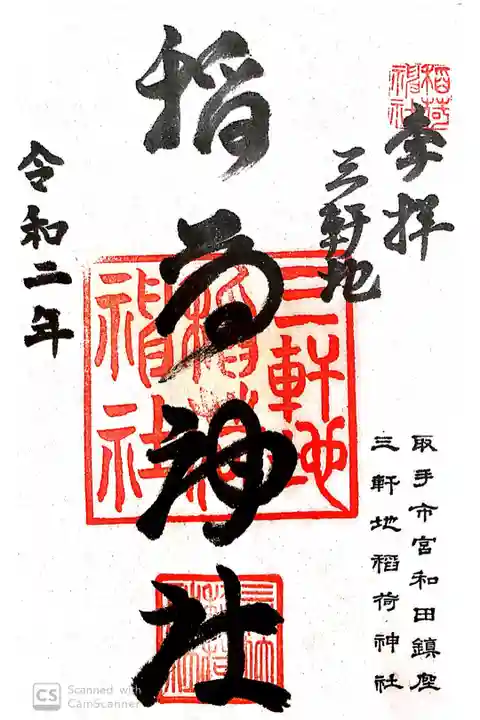 奉拝
三軒地
稲荷神社
令和二年
三軒地
稲荷
神社
稲荷
神社
取手市宮和田鎮座
三軒地稲荷神社
CS Scanned with
CamScanner